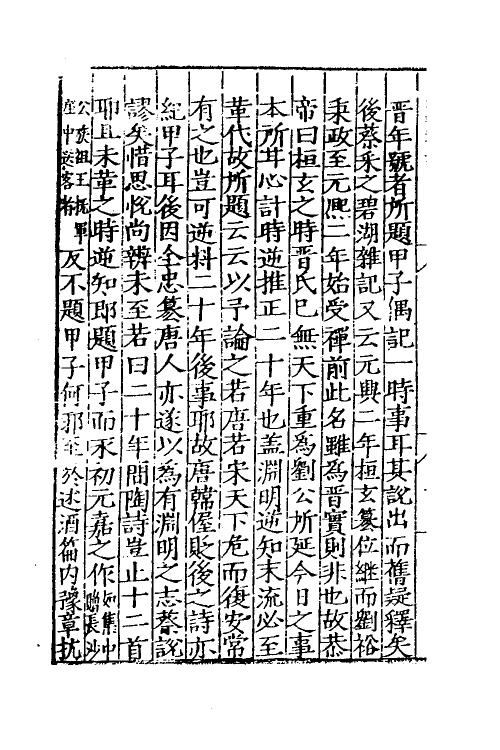 晋年號者所題甲子偶記一時事耳其說出而舊疑釋矣
後蔡采之碧湖雜記又云元興二年桓玄篡位繼而劉裕
秉政至元熙二年始受禪前此名雖為晋實則非也故恭
帝曰桓玄之時晋氏已無天下重為劉公所延今日之事
本所甘心計時逆推正二十年也蓋淵明逆知末流必至
革代故所題云云以予論之若唐若宋天下危而復安常
有之也豈可逆料二十年後事耶故唐韓偓貶後之詩亦
紀甲子耳後因全忠篡唐人亦遂以為有淵明之志蔡說
謬矣惜思悅尚辨未至若曰二十年間陶詩豈止十二首
耶且未革之時逆知即題甲子而永初元嘉之作如集中贈長沙
公族祖王撫軍座中送客者反不題甲子何邪至於述酒篇內豫章抗